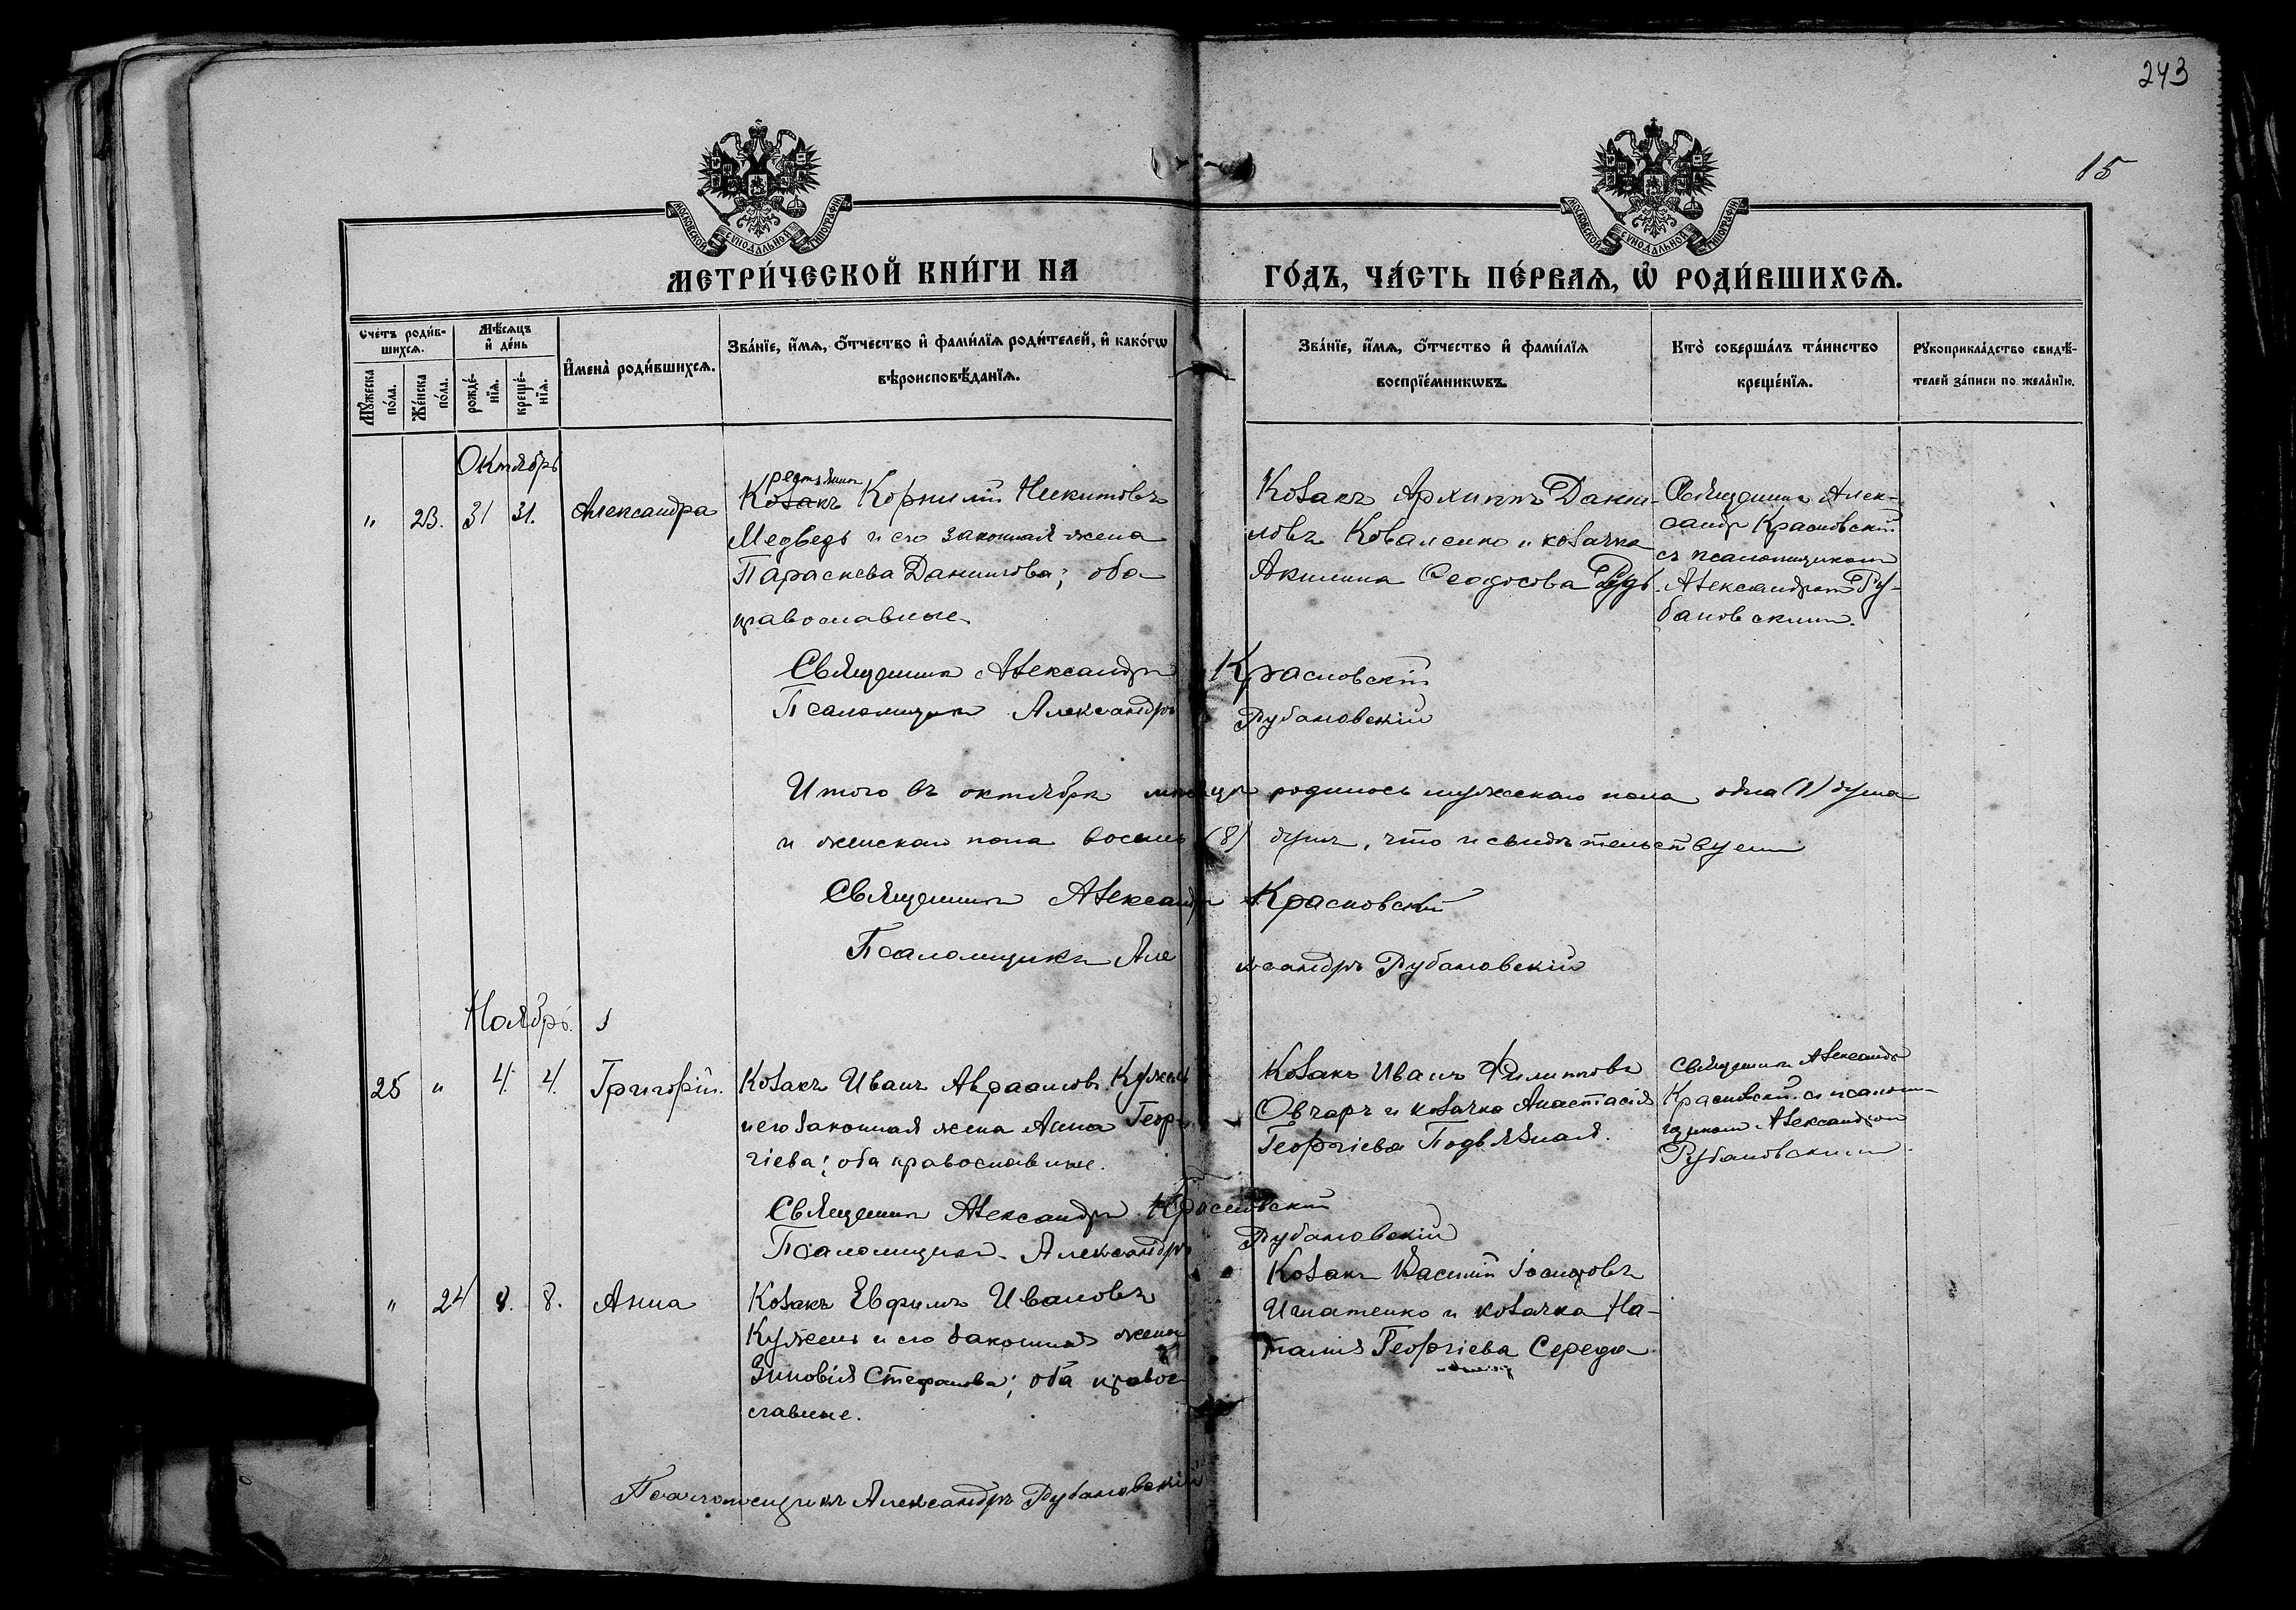 243
15
МОСКОВСКОЙ СѴНОДАЛЬНОЙ ТИПОГРАФІИ
МОСКОВСКОЙ СѴНОДАЛЬНОЙ ТИПОГРАФІИ
МЕТРИ́ЧЕСКОЙ КНИ́ГИ НА ГО́ДЪ, ЧА́СТЬ ПЕ́РВАѦ, Ѡ҆ РОДИ́ВШИХСѦ.
Счетъ роди́в-
шихсѧ.
Мѣ́сѧцъ
и҆ де́нь
Мꙋ́жеска
по́ла.
Же́нска
по́ла.
рожде́-
нїѧ.
креще́-
нїѧ.
И҆мена̀ роди́вшихсѧ.
Зва́нїе, и҆́мѧ, ѻ҆́тчество и҆ фами́лїѧ роди́телей, и҆ како́гѡ
вѣроисповѣ́данїѧ.
Зва́нїе, и҆́мѧ, ѻ҆́тчество и҆ фами́лїѧ
воспрїе́мникѡвъ.
Кто̀ соверша́лъ та́инство
креще́нїѧ.
Рꙋкоприкла́дство свидѣ́-
телей за́писи по жела́нїю.
Октябрь
" 23. 31 31. Александра
рестьянинъ
Козакъ Корнилій Никитовъ
Медведь и его законная жена
Параскева Даниилова; оба
православные
Козакъ Архиппъ Дани-
ловъ Коваленко и козачка
Акилина Феодосова Рудь.
Священникъ Алек-
сандръ Красновскій
съ псаломщикомъ
Александромъ Ру-
бановскимъ.
Священникъ Александръ Красновскій
Псаломщикъ Александръ Рубановскій
Итого въ октябрѣ мѣсяцѣ родилось мужескаго пола одна (1) душа
и женскаго пола восемь (8) душъ, что и свидѣтельствуемъ
Священникъ Александръ Красновскій
Псаломщикъ Александръ Рубановскій
Ноябрь.
25 " 4. 4. Григорій.
Козакъ Иванъ Авраамовъ Кужель
и его законная жена Анна Геор-
гіева; оба православные.
Козакъ Иванъ Филипповъ
Овчаръ и козачка Анастасія
Георгіева Подвязная.
Священникъ Александръ
Красновскій съ псалом-
щикомъ Александромъ
Рубановскимъ.
Священникъ Александръ Красновскій
Псаломщикъ Александръ Рубановскій
" 24 8. 8. Анна
Козакъ Евфимъ Ивановъ
Кужель и его законная жена
Зиновія Стефанова; оба право-
славные.
Козакъ Василій Іосифовъ
Игнатенко и козачка На-
талія Георгіева Середа
Псаломщикъ Александръ Рубановскій